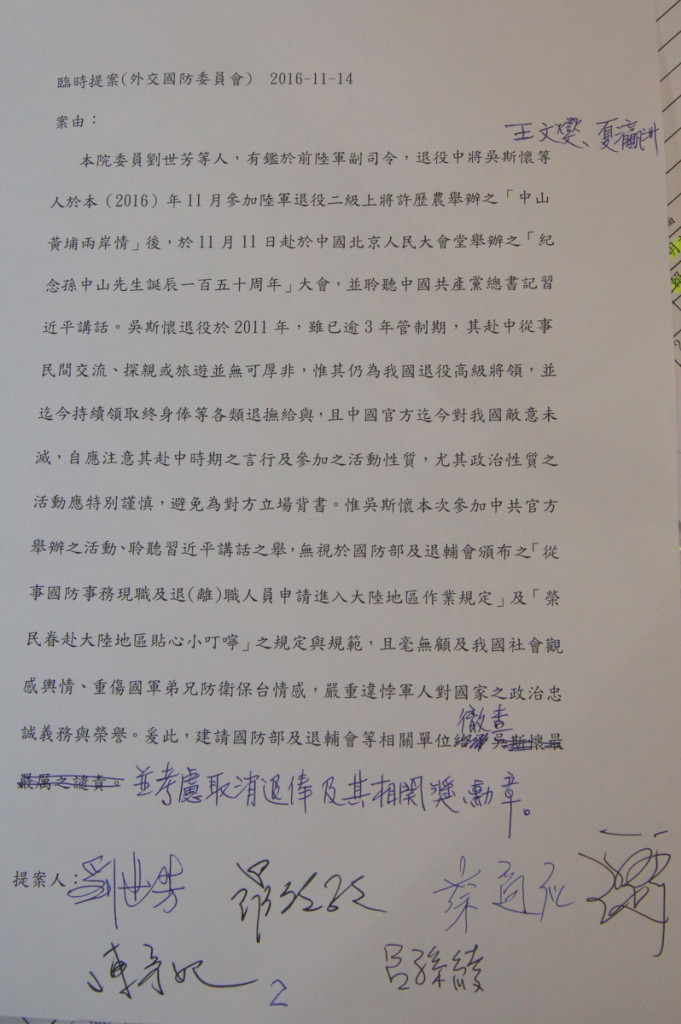 臨時提案(外交國防委員會) 2016-11-14
案由：
王文燮、夏瀛洲
本院委員劉世芳等人，有鑑於前陸軍副司令，退役中將吳斯懷等
人於本（2016）年11月參加陸軍退役二級上將許歷農舉辦之「中山
黃埔兩岸情」後，於11月11日赴於中國北京人民大會堂舉辦之「紀
念孫中山先生誕辰一百五十周年」大會，並聆聽中國共產黨總書記習
近平講話。吳斯懷退役於2011年，雖已逾3年管制期，其赴中從事
民間交流、探親或旅遊並無可厚非，惟其仍為我國退役高級將領，並
迄今持續領取終身俸等各類退撫給與，且中國官方迄今對我國敵意未
減，自應注意其赴中時期之言行及參加之活動性質，尤其政治性質之
活動應特別謹慎，避免為對方立場背書。惟吳斯懷本次參加中共官方
舉辦之活動、聆聽習近平講話之舉，無視於國防部及退輔會頒布之「從
事國防事務現職及退(離)職人員申請進入大陸地區作業規定」及「榮
民眷赴大陸地區貼心小叮嚀」之規定與規範，且毫無顧及我國社會觀
感輿情、重傷國軍弟兄防衛保台情感，嚴重違悖軍人對國家之政治忠
徹查
誠義務與榮譽。爰此，建請國防部及退輔會等相關單位給予吳斯懷最
嚴厲之譴責。並考慮取消退俸及其相關獎勳章。
提案人：劉世芳 蔡適應
陳亭妃 呂孫綾
2